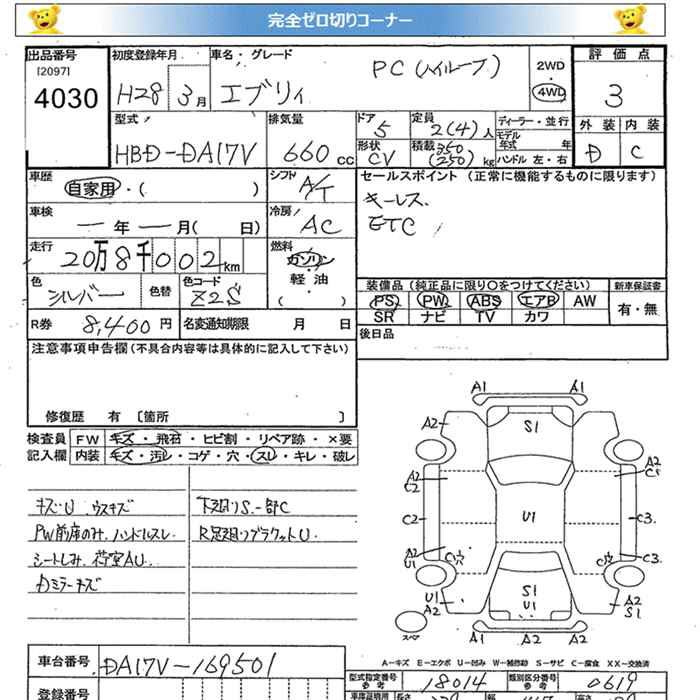 完全ゼロ切りコーナー
出品番号 初度登録年月 車名・グレード 評価点
[2097] 4030 H28 3月 エブリィ PC(ハイルーフ) 2WD・4WD 3
型式 排気量 ドア 定員 ディーラー・並行 外装 内装
HBD-DA17V 660cc 5 2(4)人 モデル年式 年 D C
形状 CV 積載 350(250)kg ハンドル 左・右
車歴 シフト セールスポイント (正常に機能するものに限ります)
自家用・( ) A/T キーレス.
車検 冷房 ETC
ー年ー月( 日) AC
走行 燃料
20万8千002km ガソリン・軽油・( )
色 色替 色コード 装備品(純正品に限り○をつけてください) 新車保証書
シルバー Z2S PS PW ABS エアB AW 有・無
SR ナビ TV カワ
R券 8,400円 名変通知期限 月 日 後日品
注意事項申告欄(不具合内容等は具体的に記入して下さい)
修復歴 有 [箇所 ]
検査員 FW キズ・飛石・ヒビ割・リペア跡・×要
記入欄 内装 キズ・汚レ・コゲ・穴・スレ・キレ・破レ
キズU ウスキズ 下廻りS.一部C
PW前席のみ.ハンドルスレ R足廻りブラケットU.
シートしみ.荷室AU.
Dミラーキズ
A1 A1
A2 S1
A2 C2 A2 C1
C2 U1 C3.
A2 U1 C穴 C穴 C3
U1 A2 S1 U1 A2 S1
スペア A2 A2
A-キズ E-エクボ U-凹み W-補修跡 S-サビ C-腐食 XX-交換済
車台番号 DA17V-169501
型式指定番号 参考 18014 類別区分番号 参考 0619
登録番号
車庫証明用 長さ 幅 高さ